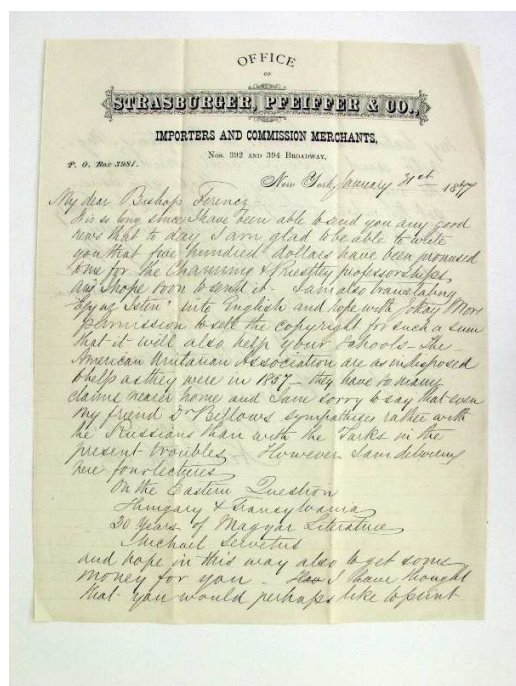 OFFICE
OF
STRASBURGER, PFEIFFER & CO.,
IMPORTERS AND COMMISSION MERCHANTS,
Nos. 392 AND 394 BROADWAY,
P. O. Box 3981.
New York, January 31st 1877
My dear Bishop Ferencz
It is so long since I have been able to send you any good
news that to day I am glad to be able to write
you that five hundred dollars have been promised
to me for the Channing & Priestley professorships,
and I hope soon to send it. I am also translating
"Egy az Isten" into English and hope with Jokay Mors
permission to sell the copyright for such a sum
that it will also help your schools - The
American Unitarian Association are as indisposed
to help as they were in 1857 - they have so many
claims nearer home and I am sorry to say that even
my friend Dr Bellows sympathises rather with
the Russians than with the Turks in the
present troubles. However I am delivering
here four lectures
On the Eastern Question
Hungary & Transylvania
30 Years of Magyar Literature
Michael Servetus
and hope in this way also to get some
money for you - I have thought
that you would perhaps like to print